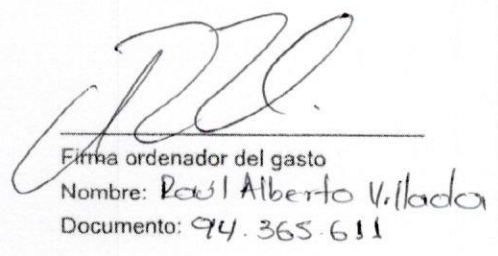 Firma ordenador del gasto
Nombre: Raúl Alberto Villada
Documento: 94.365.611